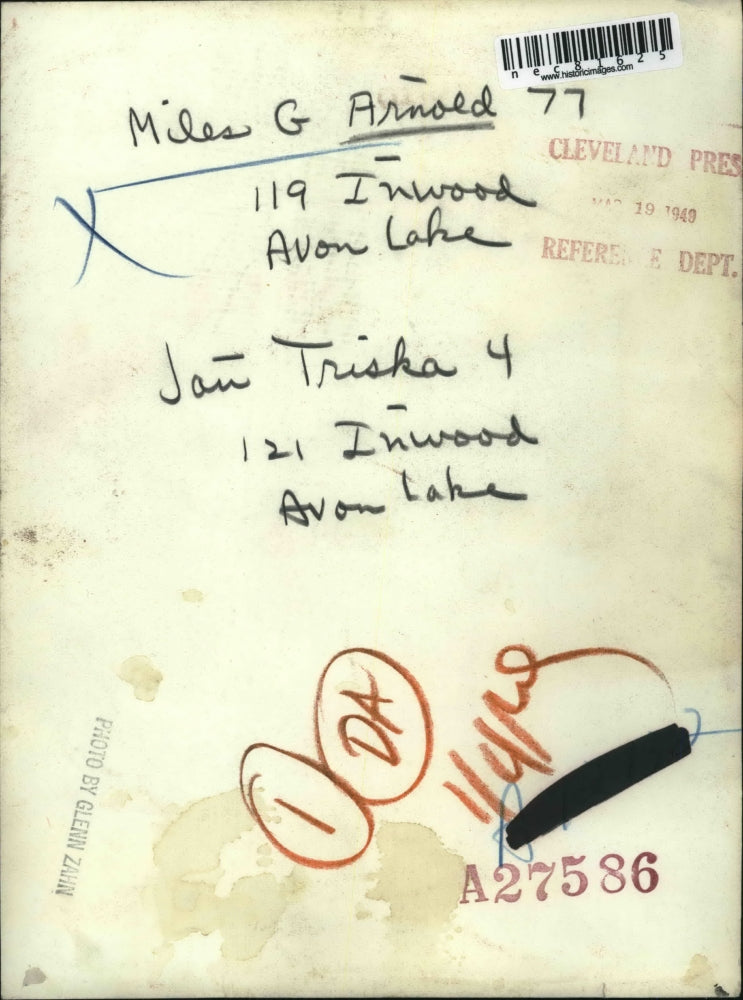 nec81625
www.historicimages.com
Miles G Arnold 77
119 Inwood
Avon Lake
CLEVELAND PRES
MAR 19 1940
REFERE E DEPT.
Jan Triska 4
121 Inwood
Avon Lake
DA
1
PHOTO BY GLENN ZAHN
A27586